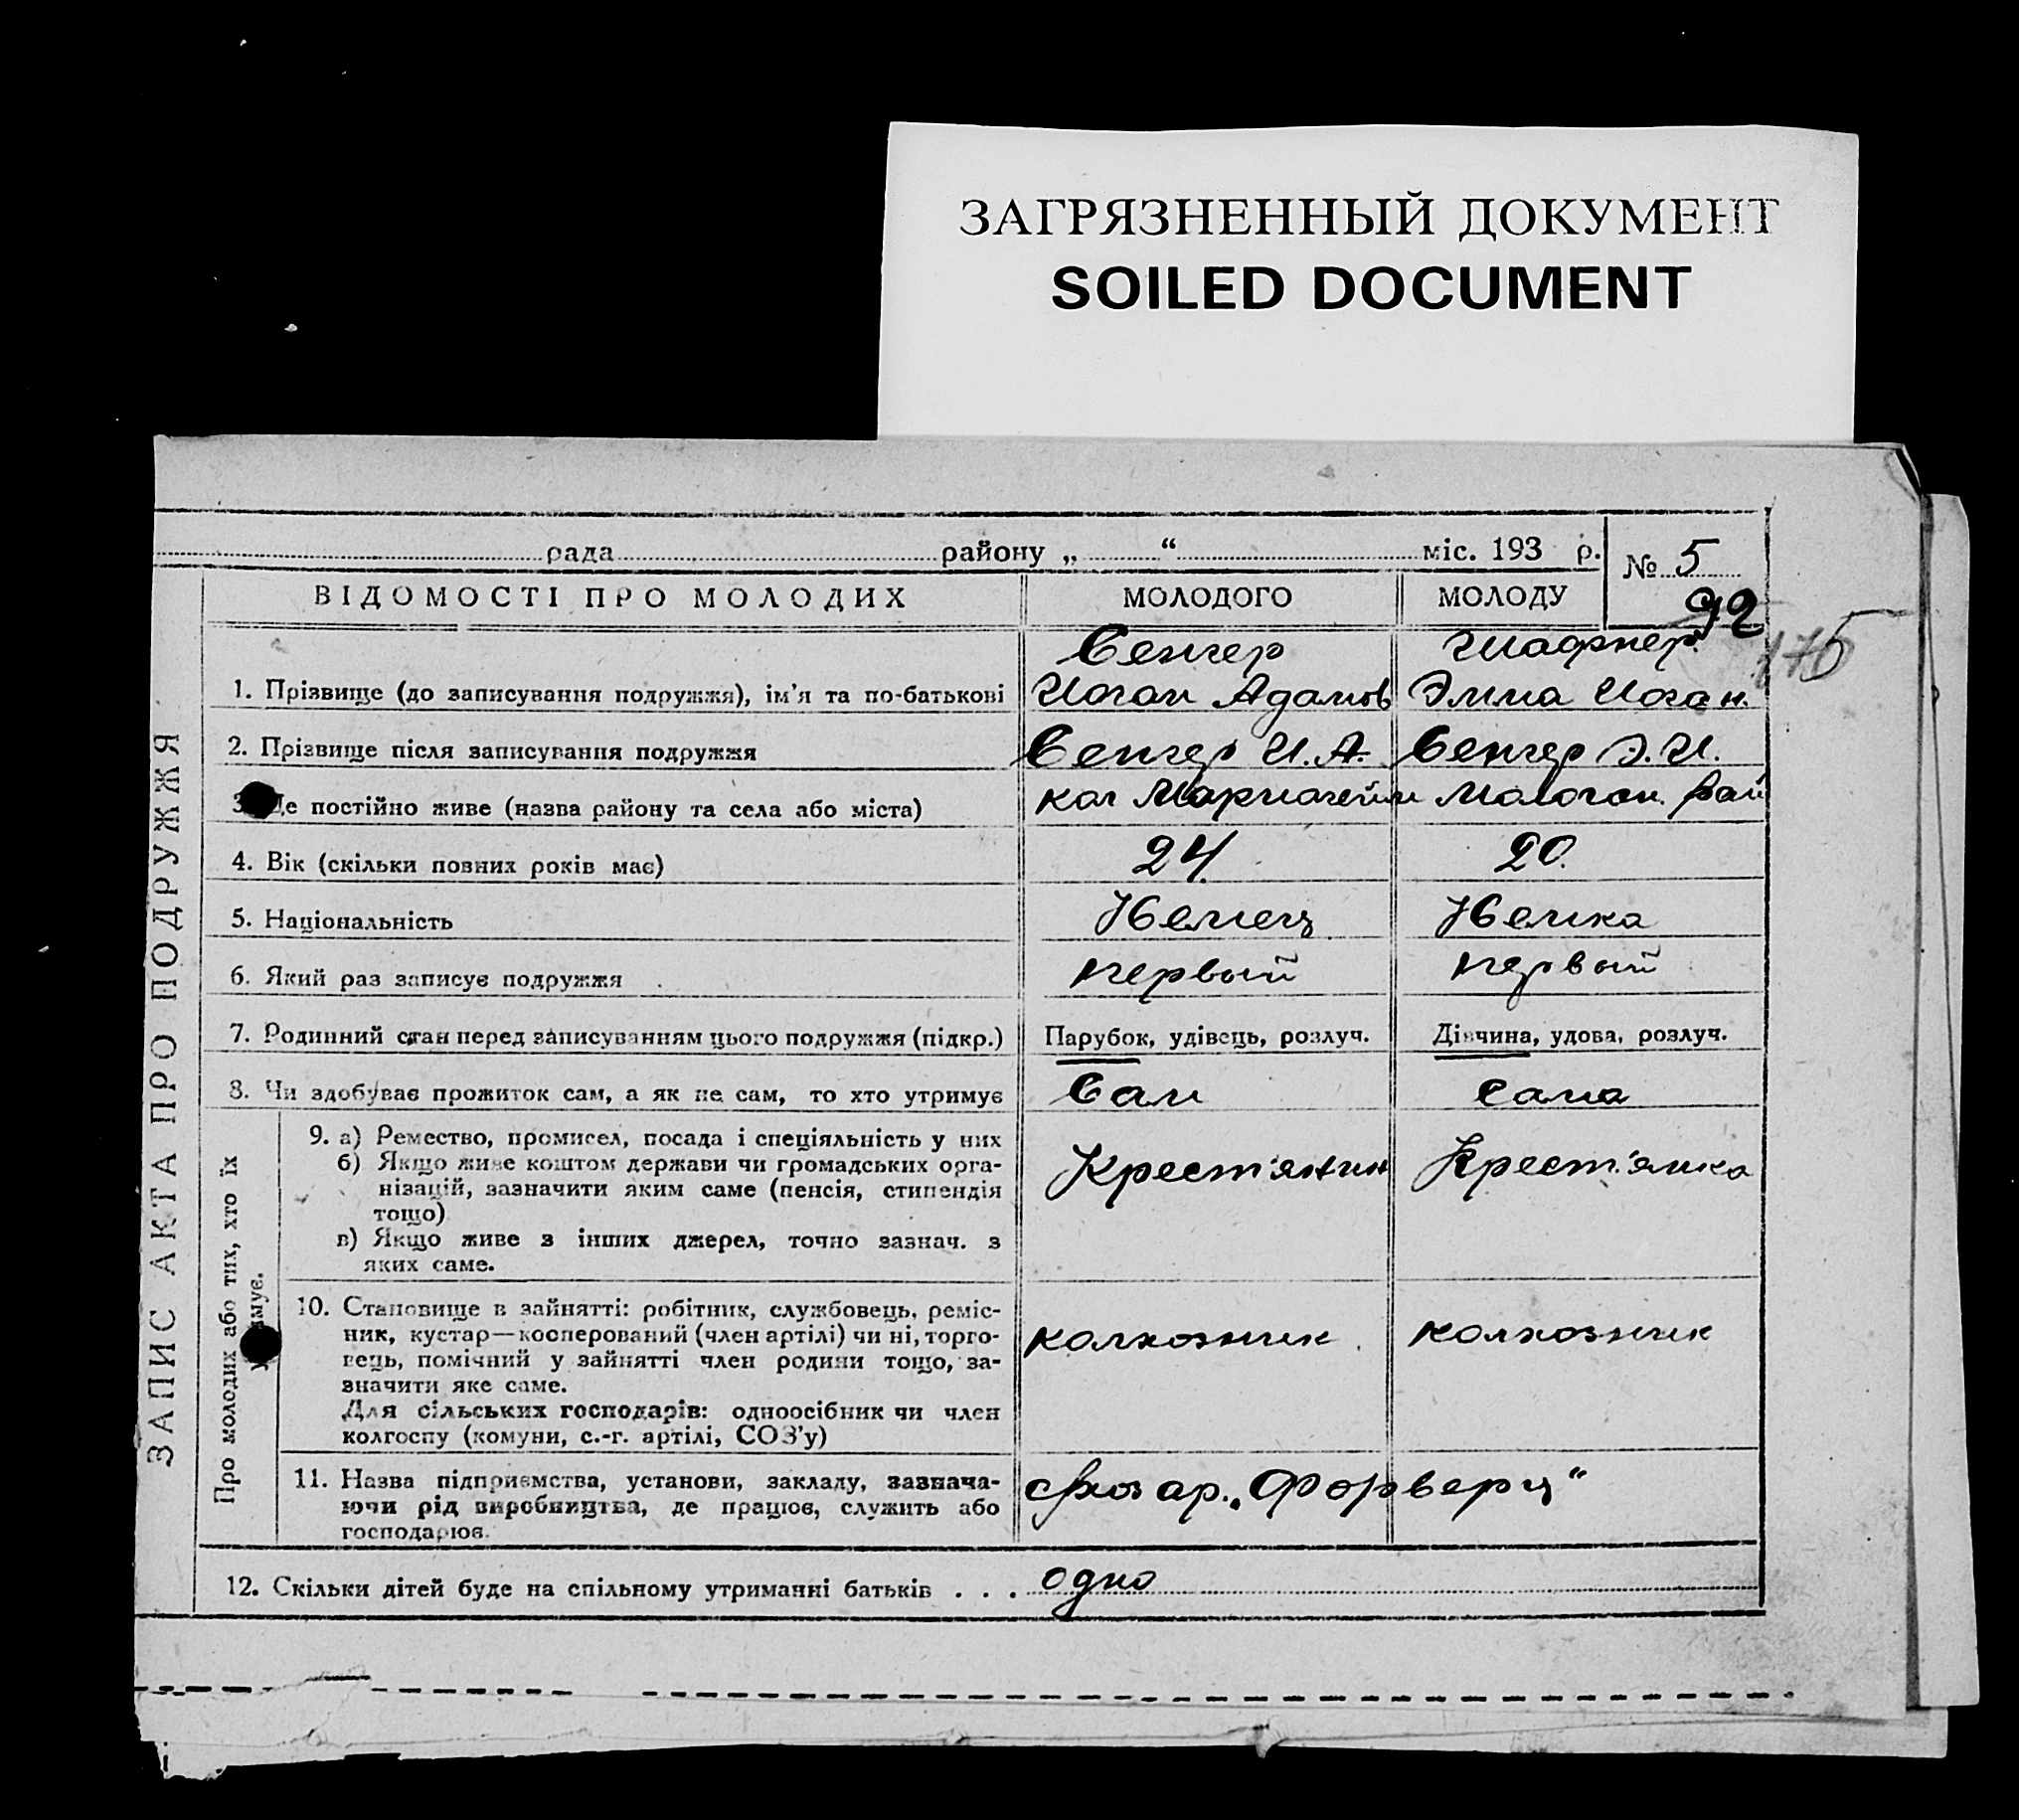 ЗАГРЯЗНЕННЫЙ ДОКУМЕНТ
SOILED DOCUMENT
рада району „ “ міс. 193 р.
№ 5
92
175
ВІДОМОСТІ ПРО МОЛОДИХ МОЛОДОГО МОЛОДУ
Венгер Шафнер
1. Прізвище (до записування подружжя), ім’я та по-батькові Иоган Адамов Эмма Иоган.
2. Прізвище після записування подружжя Венгер И. А. Венгер Э. И.
3. Де постійно живе (назва району та села або міста) кол Мариагейм Молочан. рай
4. Вік (скільки повних років має) 24. 20.
5. Національність Немец Немка
6. Який раз записує подружжя первый первый
7. Родинний стан перед записуванням цього подружжя (підкр.) Парубок, удівець, розлуч. Дівчина, удова, розлуч.
8. Чи здобуває прожиток сам, а як не сам, то хто утримує Сам сама
9. а) Ремество, промисел, посада і спеціяльність у них
б) Якщо живе коштом держави чи громадських орга- Крест'янин Крест'янка
нізацій, зазначити яким саме (пенсія, стипендія
тощо)
в) Якщо живе з інших джерел, точно зазнач. з
яких саме.
10. Становище в зайнятті: робітник, службовець, реміс-
ник, кустар—кооперований (член артілі) чи ні, торго- колхозник колхозник
вець, помічний у зайнятті член родини тощо, за-
значити яке саме.
Для сільських господарів: одноосібник чи член
колгоспу (комуни, с.-г. артілі, СОЗ’у)
11. Назва підприємства, установи, закладу, зазнача- ар. „Форверц“
ючи рід виробництва, де працює, служить або
господарює.
12. Скільки дітей буде на спільному утриманні батьків . . . одно
ЗАПИС АКТА ПРО ПОДРУЖЖЯ
Про молодих або тих, хто їх